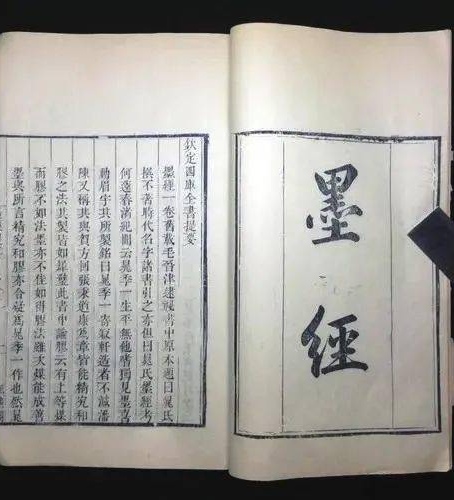 墨經
欽定四庫全書提要
墨經一卷舊載毛晉津逮祕書中原本題曰晁氏
撰不著時代名字諸書引之亦但曰晁氏墨經考
何薳春渚紀聞云晁季一生平無他嗜獨見墨喜
動眉宇其所製銘曰晁季一寄寂軒造者不減潘
陳又稱其與賀方回張秉道康為章皆能精究和
膠之法其製皆如犀璧此書中論膠云有上等煤
而膠不如法墨亦不佳如得膠法雖次煤能成善
墨與所言精究和膠亦合疑為晁季一作也然晁